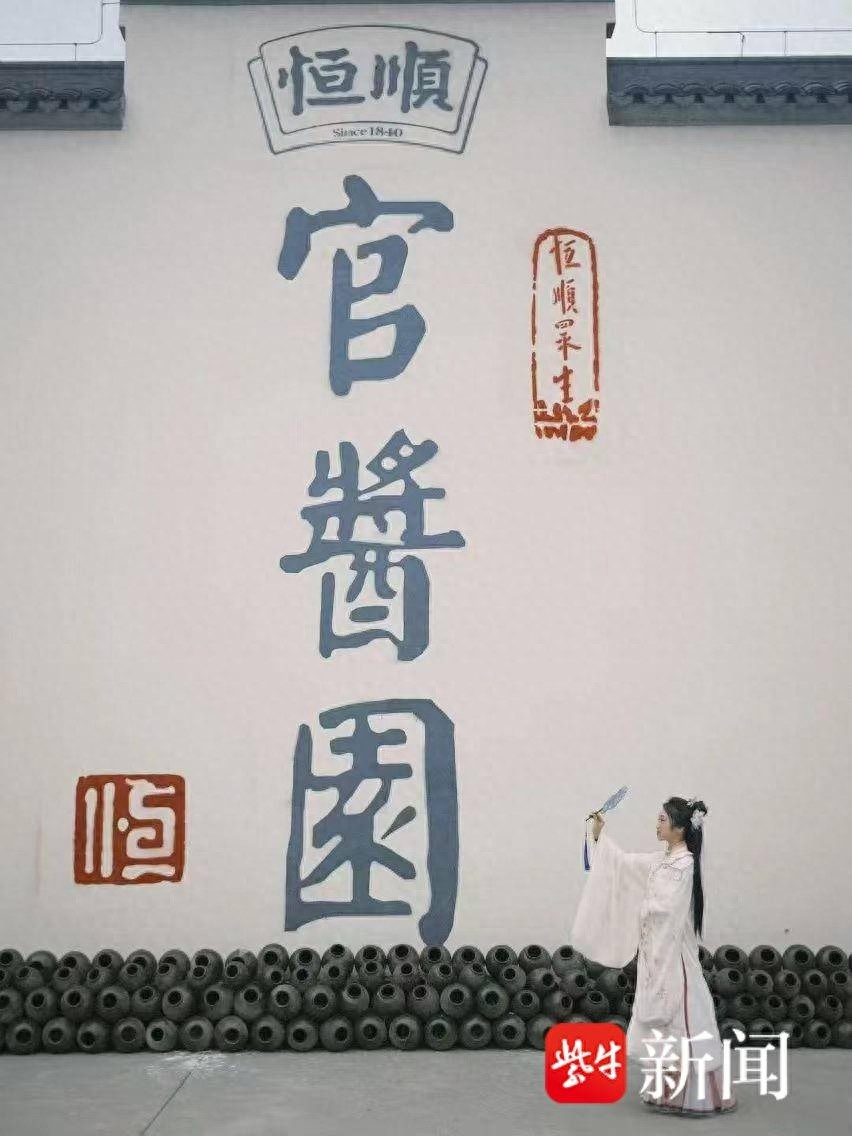 恒順
Since 1840
官醬園
恒順眾生
恒
紫牛新闻